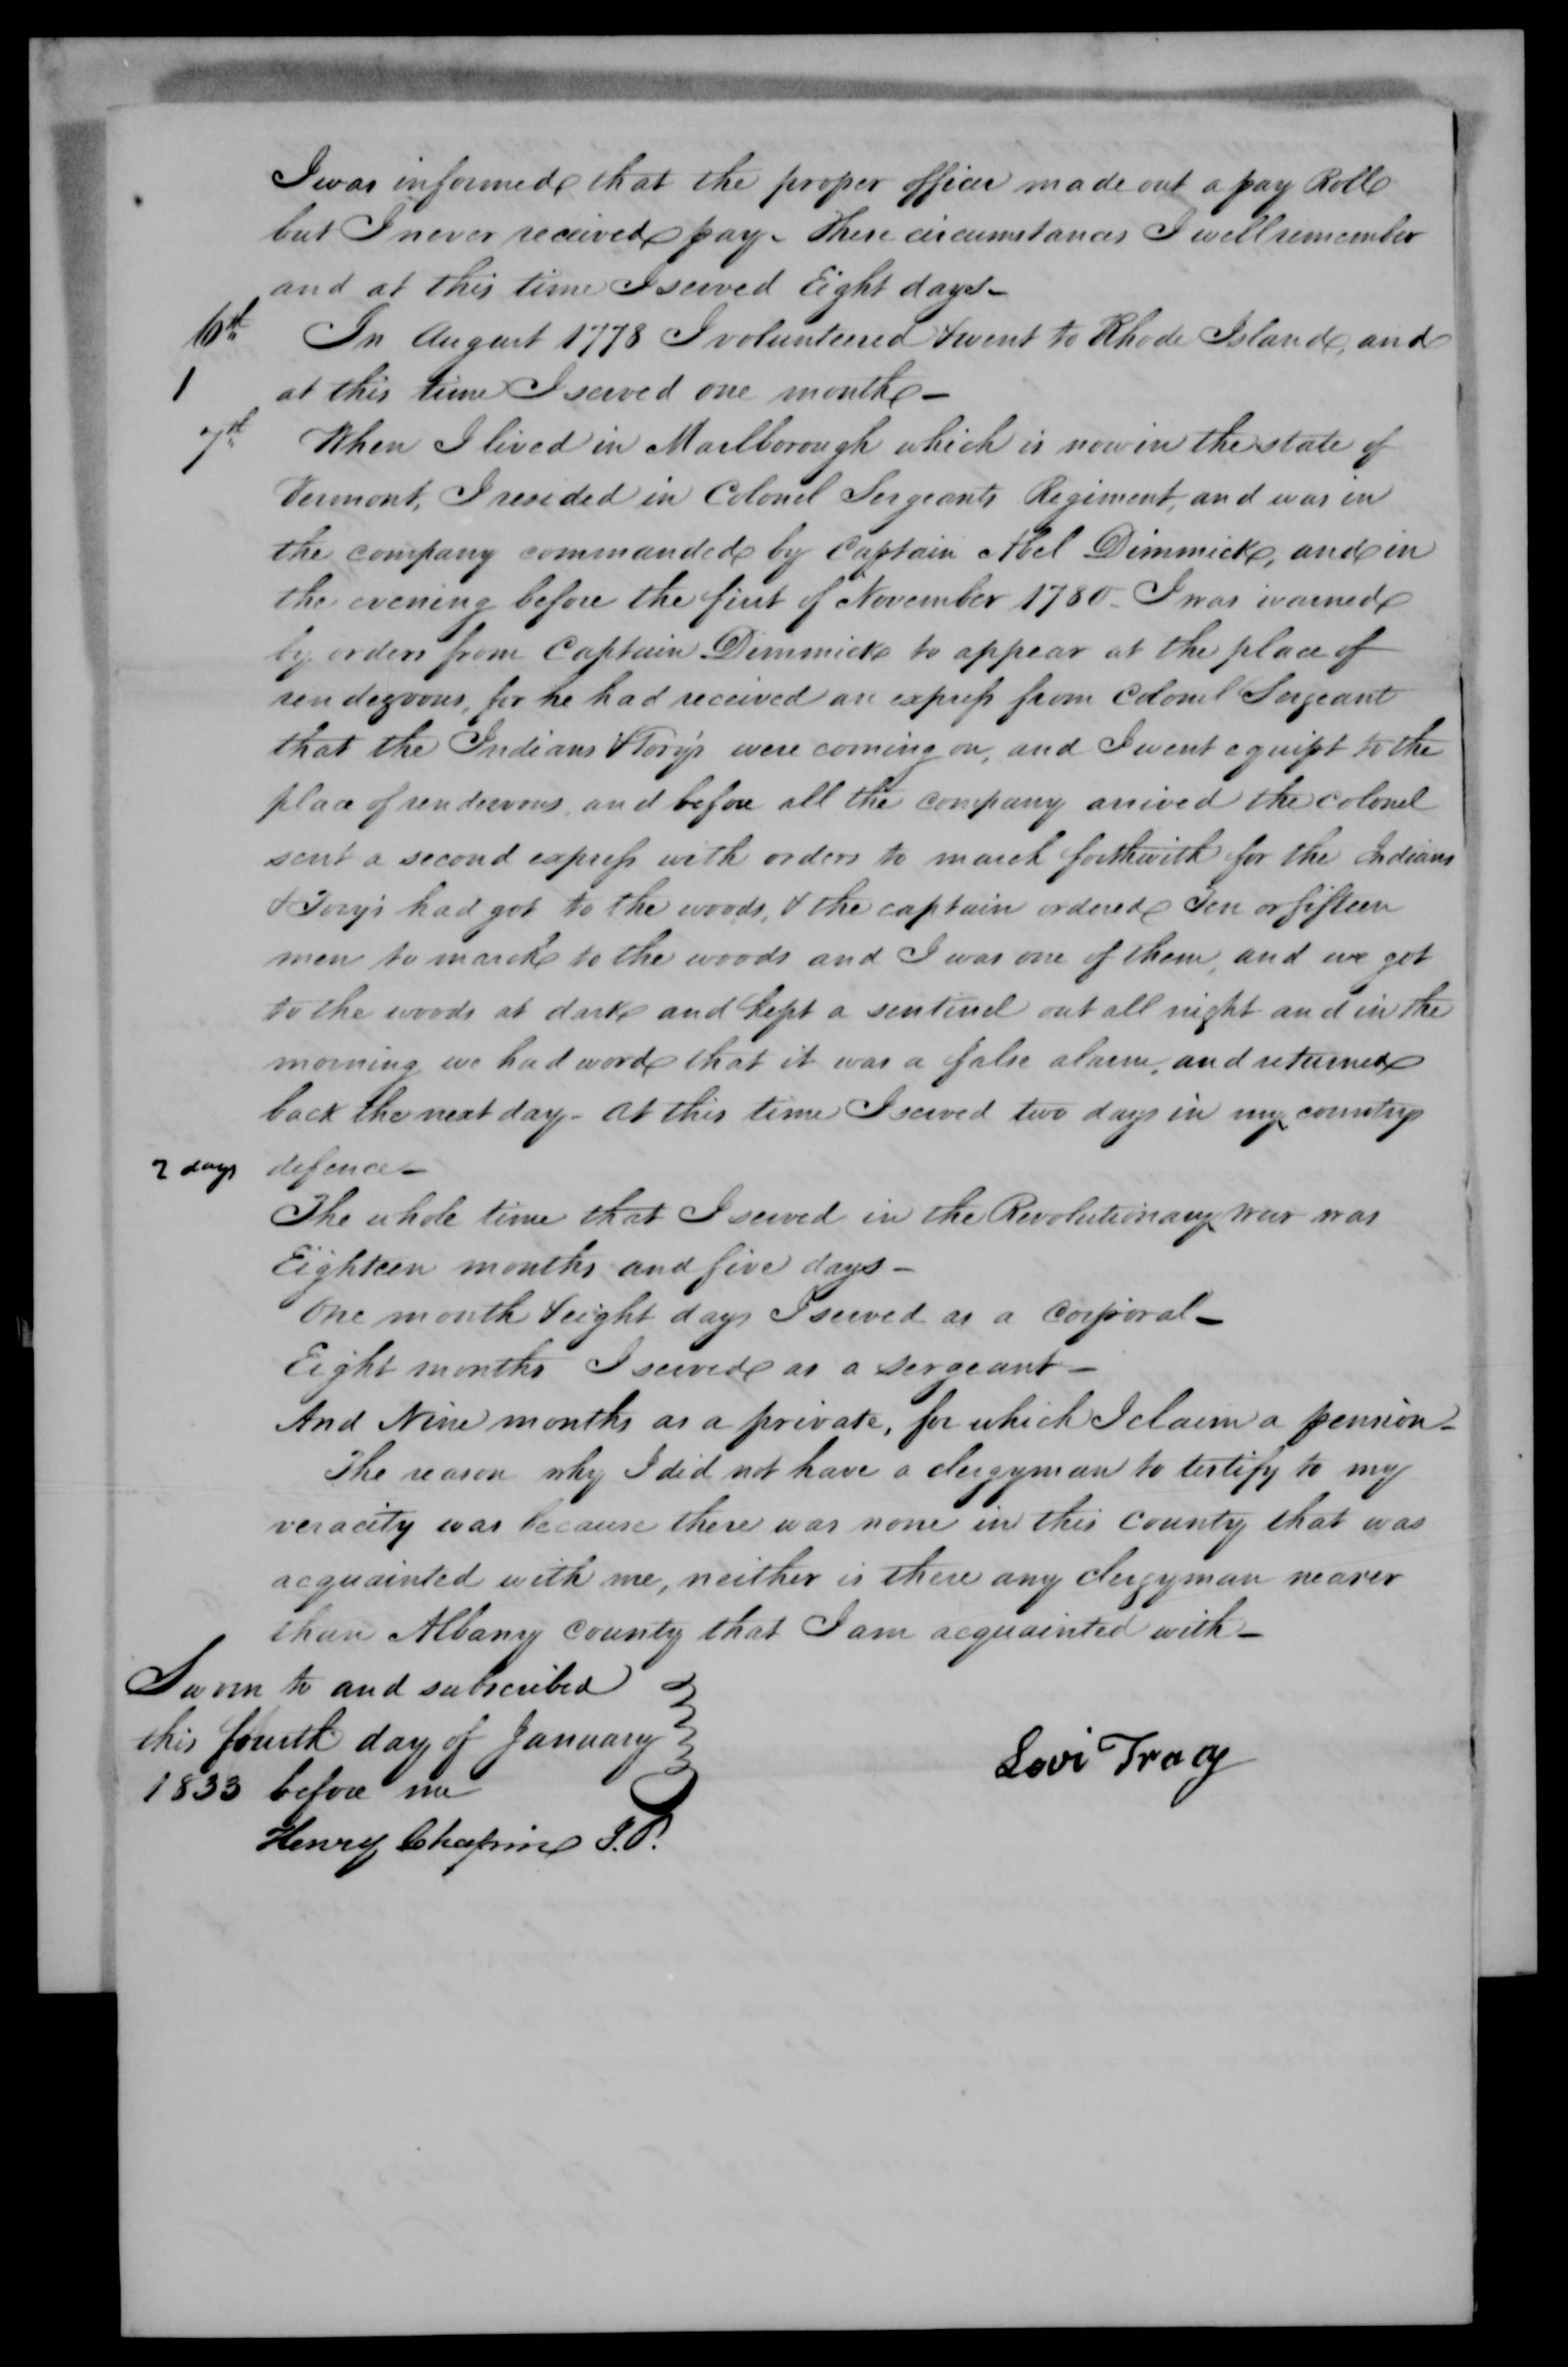 I was informed that the proper officer made out a pay Roll
but I never received pay - These circumstances I well remember
and at this time I served Eight days -
6th In August 1778 I volunteered & went to Rhode Island, and
1 at this time I served one month -
7th When I lived in Marlborough which is now in the state of
Vermont, I resided in Colonel Sergeants Regiment, and was in
the company commanded by Captain Abel Dimmick, and in
the evening before the first of November 1780 - I was warned
by orders from Captain Dimmick to appear at the place of
rendezvous, for he had received an express from Colonel Sergeant
that the Indians & Tory's were coming on, and I went equipt to the
place of rendesvous, and before all the company arrived the colonel
sent a second express with orders to march forthwith for the Indians
& Tory's had got to the woods, & the captain ordered Ten or fifteen
men to march to the woods and I was one of them, and we got
to the woods at dark and kept a sentinel out all night and in the
morning we had word that it was a false alarm, and returned
back the next day - at this time I served two days in my countrys
2 days defence -
The whole time that I served in the Revolutionary war was
Eighteen months and five days -
One month & eight days I served as a Corporal -
Eight months I served as a sergeant -
And Nine months as a private, for which I claim a pension -
The reason why I did not have a clergyman to testify to my
veracity was because there was none in this County that was
acquainted with me, neither is there any clergyman nearer
than Albany County that I am acquainted with -
Sworn to and subscribed
this fourth day of January
1833 before me
Levi Tracy
Henry Chapin J.P.